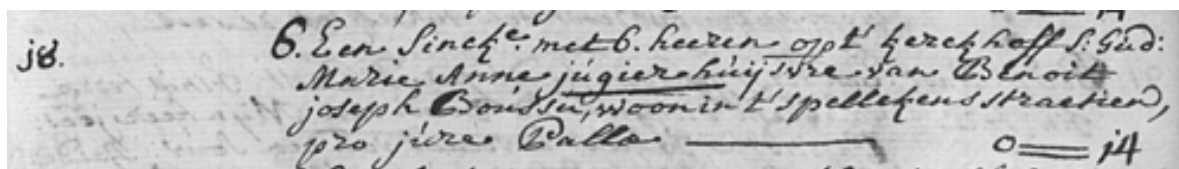 j8. 6. Een Sinck.e met 6. heeren op t' kerckhoff S: Gud:
Marie Anne júgier húijsvre van Benoit
joseph Boússú, woon in t' spellekens straetien,
pro júre Palla —— 0 = j4